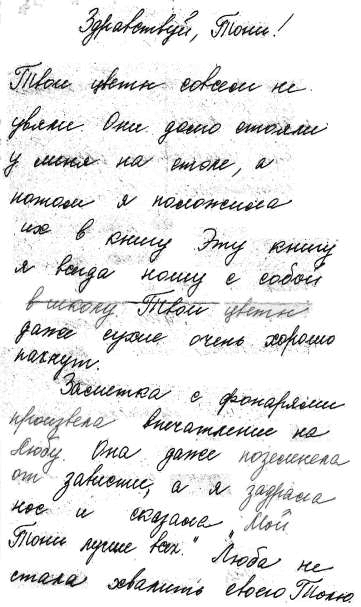 Здравствуй, Тони!
Твои цветы совсем не
увяли. Они долго стояли
у меня на столе, а
потом я положила
их в книгу Эту книгу
я всегда ношу с собой
в школу. Твои цветы
даже сухие очень хорошо
пахнут.
Заметка с фонарями
произвела впечатление на
Любу. Она даже позеленела
от зависти, а я задрала
нос и сказала "Мой
Тони лучше всех." Люба не
стала хвалить своего Толю.